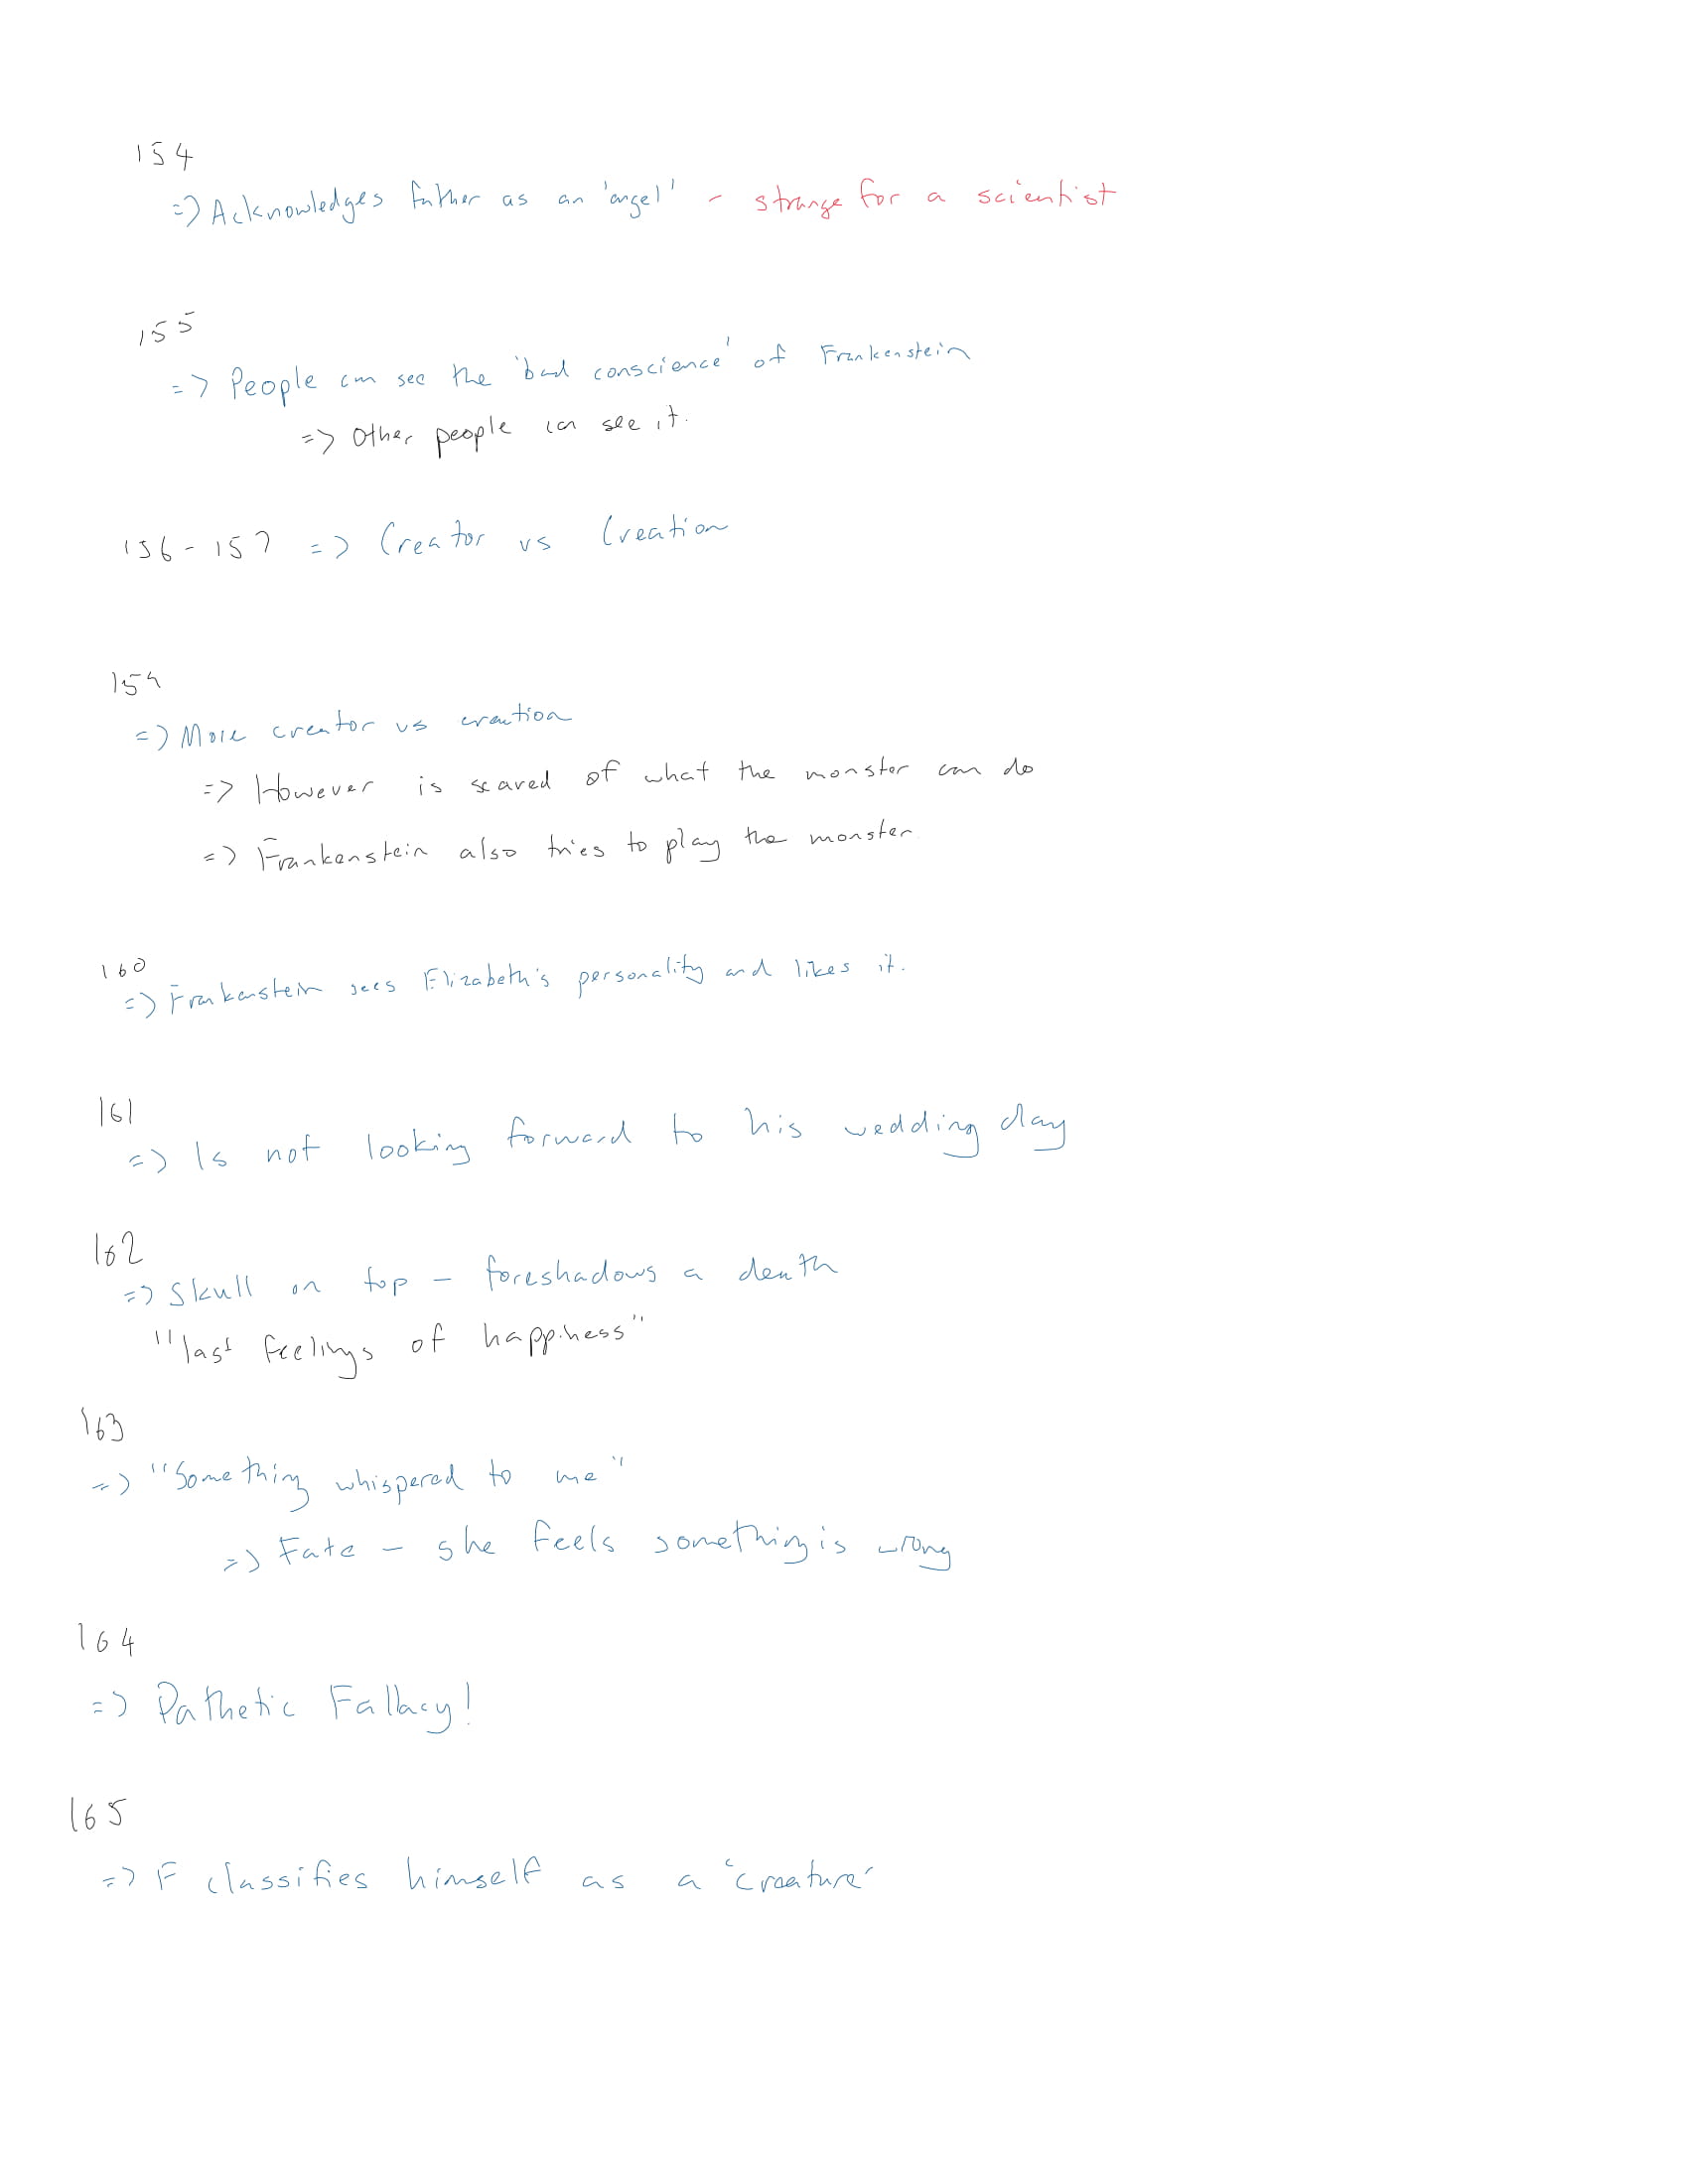 154
=> Acknowledges father as an 'angel' - strange for a scientist
155
=> People can see the 'bad conscience' of Frankenstein
=> Other people can see it.
156 - 157 => Creator vs Creation
159
=> More creator vs creation
=> However is scared of what the monster can do
=> Frankenstein also tries to play the monster
160
=> Frankenstein sees Elizabeth's personality and likes it.
161
=> Is not looking forward to his wedding day
162
=> Skull on top - foreshadows a death
"last feelings of happiness"
163
=> "Something whispered to me"
=> Fate - she feels something is wrong
164
=> Pathetic Fallacy!
165
=> F classifies himself as a 'creature'